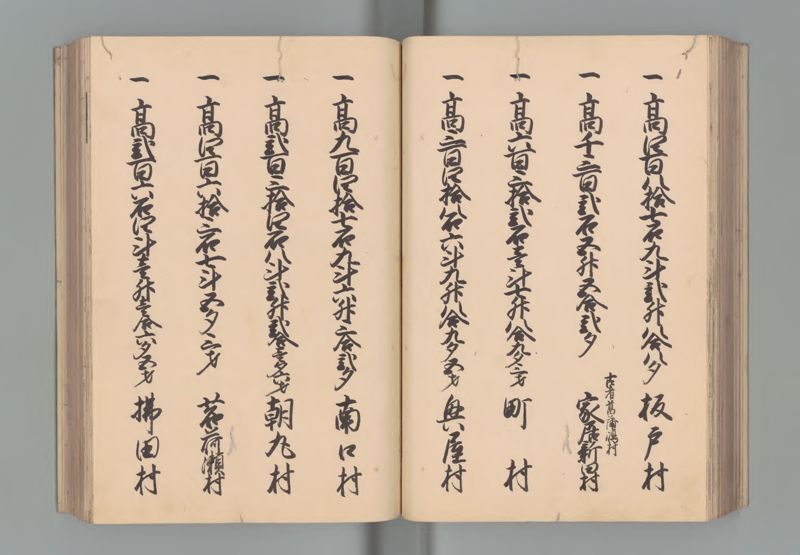 一 高四百八拾七石九斗弐升八合八夕 板戸村
一 高千三百弐石五升五合弐夕 古者菖蒲村 家居新田村
一 高六百三拾弐石壱斗七升八合九夕三才 町村
一 高三百四拾八石六斗九升八合九夕五才 興屋村
一 高九百四拾七石九斗六升三合弐夕 南口村
一 高弐百三拾四石八斗弐升弐合壱夕六才 朝丸村
一 高四百六拾三石七斗五夕三才 茗荷瀬村
一 高弐百六石四斗壱升壱合六夕五才 拂田村